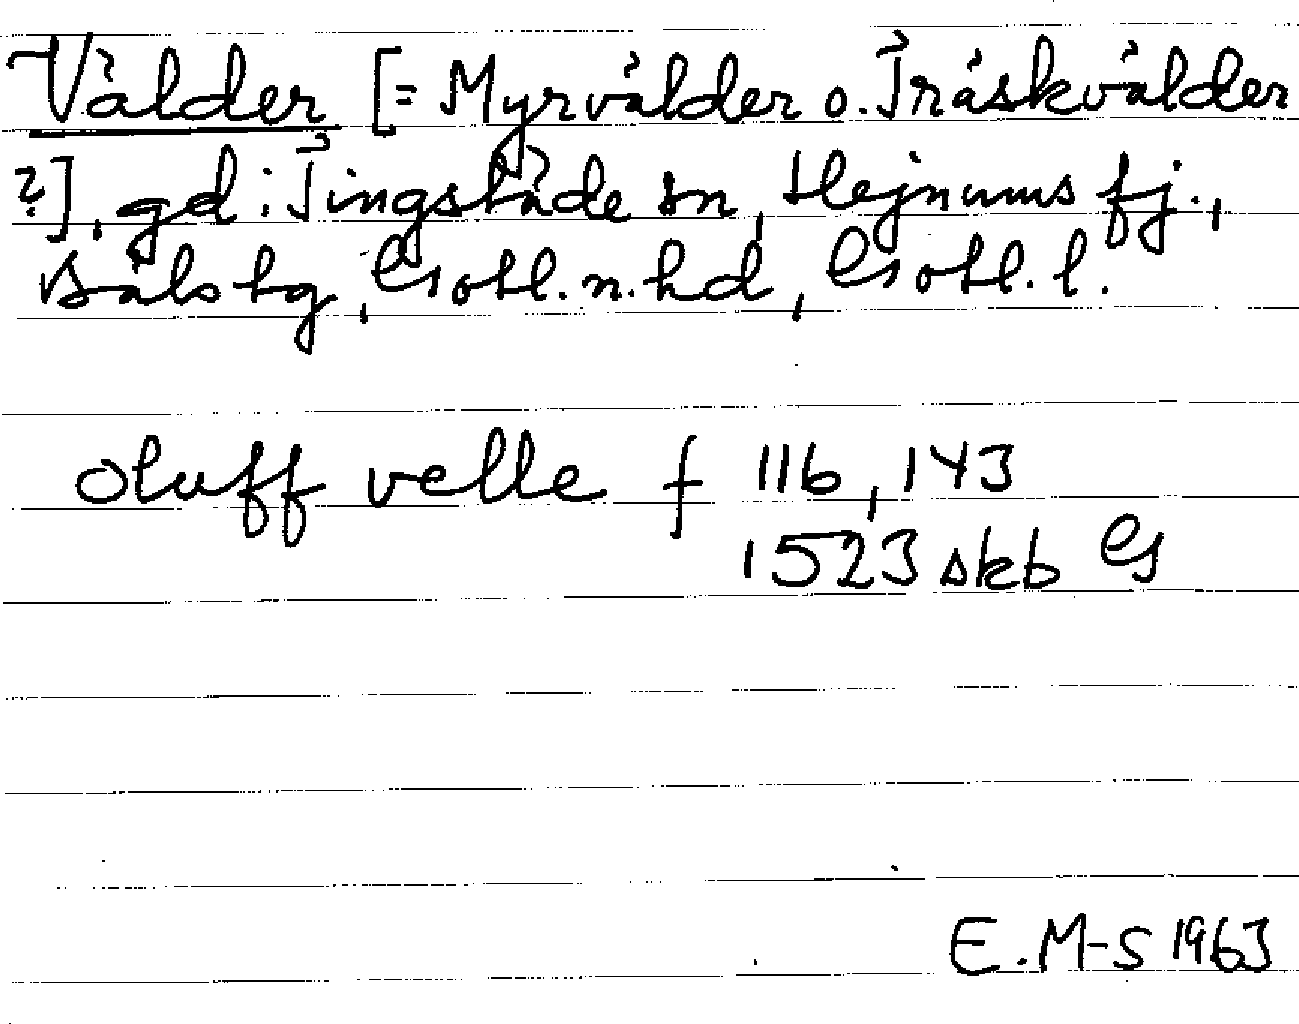 Välder [= Myrvälder o. Träskvälder
?], gd i Tingstäde sn, Hejnums fj.,
Bäls tg, Gotl. n. hd, Gotl. l.
oluff velle f 116, 143
1523 skb G
E. M-S 1963